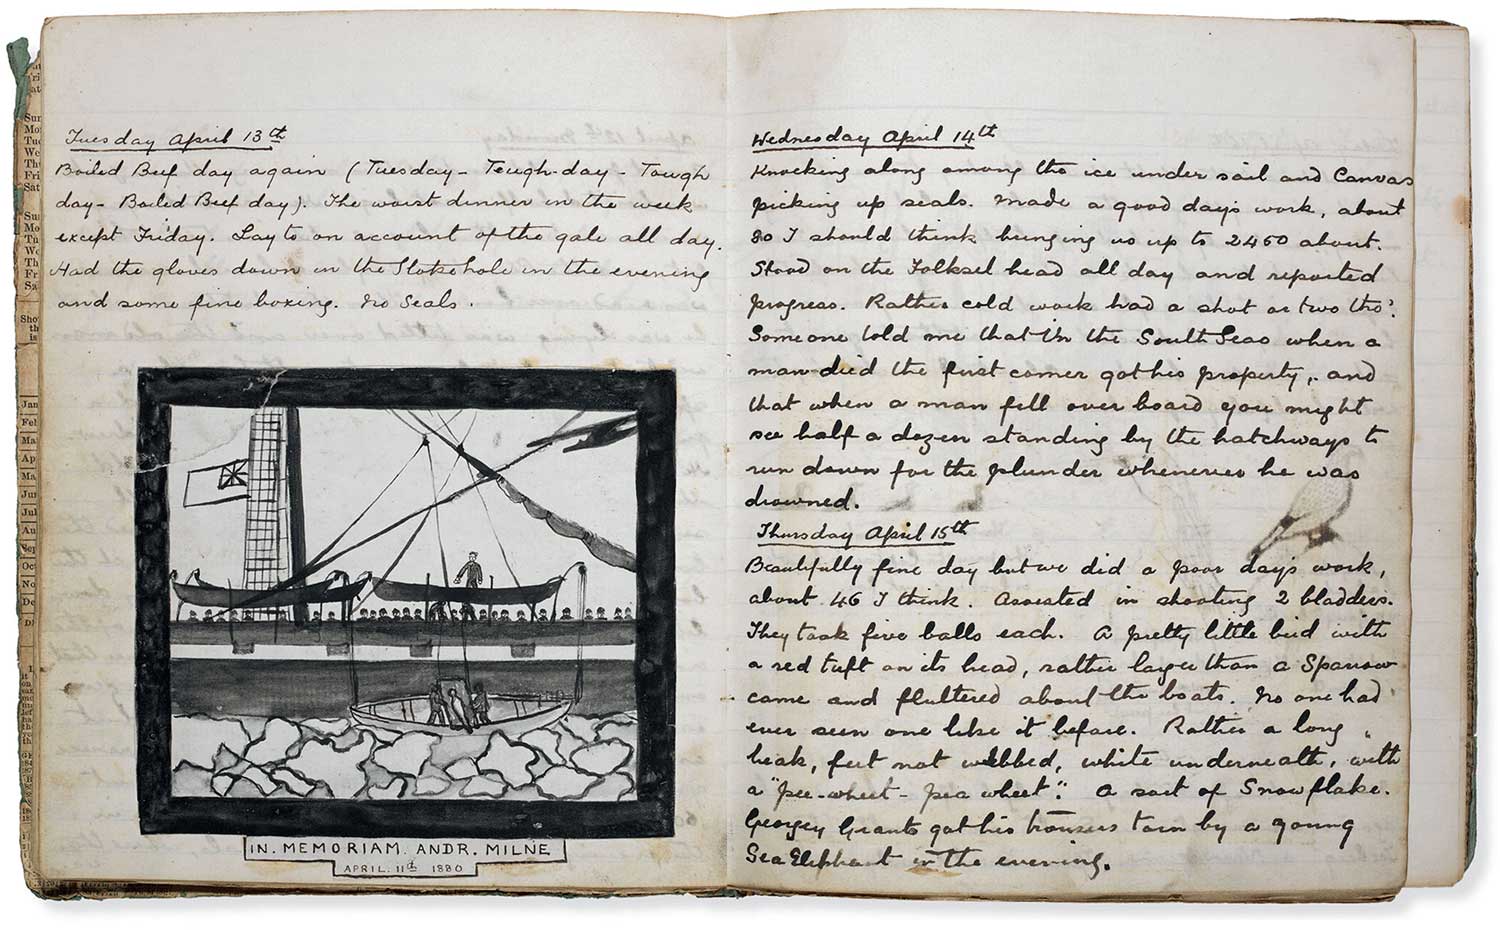 Tuesday April 13th
Boiled Beef day again (Tuesday - Tough-day - Tough
day - Boiled Beef day). The worst dinner in the week
except Friday. Lay to on account of the gale all day.
Had the gloves down in the Stokehole in the evening
and some fine boxing. No Seals.
IN. MEMORIAM. ANDR. MILNE
APRIL. 11th 1880
Wednesday April 14th
Knocking along among the ice under sail and Canvas
picking up seals. Made a good day's work, about
80 I should think bringing us up to 2450 about.
Stood on the Folksel head all day and reported
progress. Rather cold work had a shot or two tho'.
Someone told me that in the South Seas when a
man died the first comer got his property, and
that when a man fell over board you might
see half a dozen standing by the hatchways to
run down for the plunder whenever he was
drowned.
Thursday April 15th
Beautifully fine day but we did a poor days work,
about 46 I think. Assisted in shooting 2 bladders.
They took five balls each. A pretty little bird with
a red tuft on its head, rather larger than a Sparrow
came and fluttered about the boats. No one had
ever seen one like it before. Rather a long
beak, feet not webbed, white underneath, with
a "pee-wheet - pea wheet". A sort of Snowflake.
Georgey Grants got his trousers torn by a young
Sea Elephant in the evening.